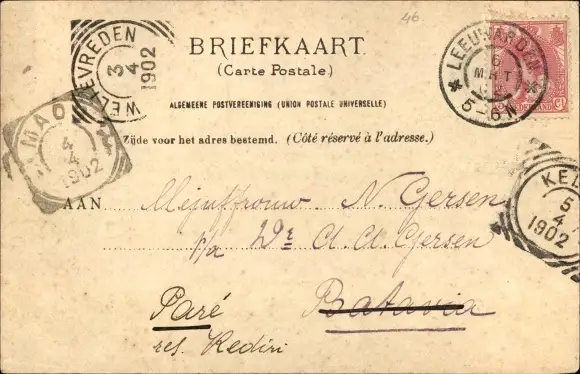 46
WELTEVREDEN
3
4
1902
BRIEFKAART.
(Carte Postale.)
ALGEMEENE POSTVEREENIGING (UNION POSTALE UNIVERSELLE)
Zijde voor het adres bestemd. (Côté réservé à l'adresse.)
LEEUWARDEN
6
MRT
02
5-6N
NEDERLAND
MAO
4
4
1902
KE
5
4
1902
AAN
Mejuffrouw N. Gersen
p/a Dr A. A. Gersen
Paré Batavia
res. Kediri